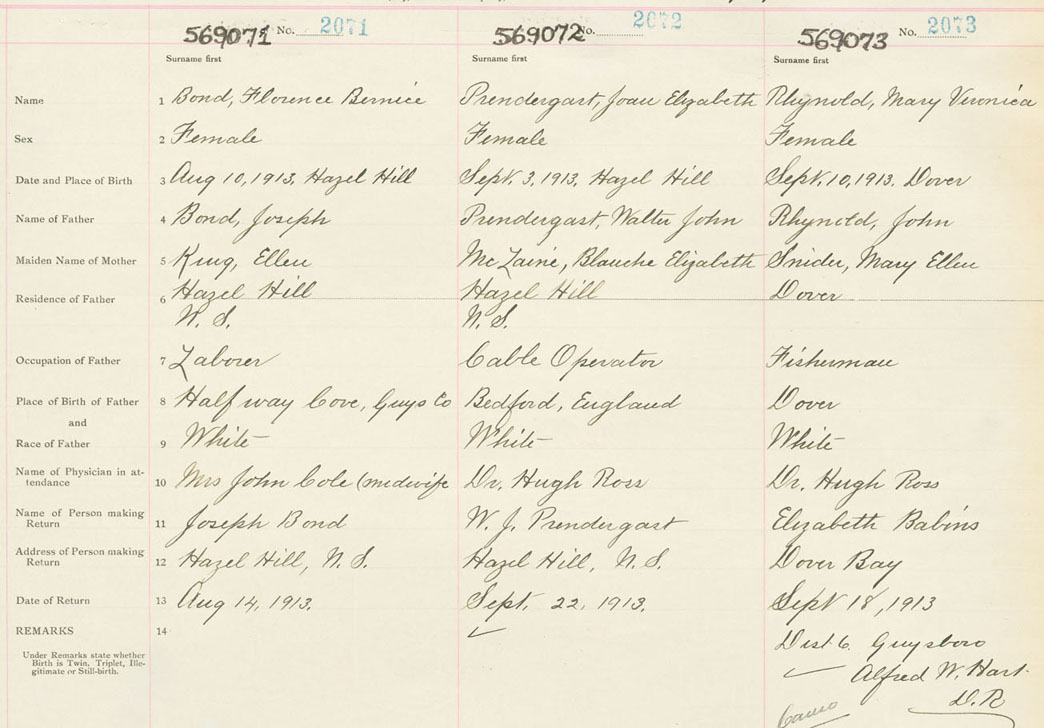 569071 No. 2071 569072 No. 2072 569073 No. 2073
Surname first Surname first Surname first
Name 1 Bond, Florence Bernice Prendergast, Joan Elizabeth Rhynold, Mary Veronica
Sex 2 Female Female Female
Date and Place of Birth 3 Aug 10, 1913, Hazel Hill Sept. 3, 1913, Hazel Hill Sept. 10, 1913. Dover
Name of Father 4 Bond, Joseph Prendergast, Walter John Rhynold, John
Maiden Name of Mother 5 King, Ellen Blanche Elizabeth Snider, Mary Ellen
Residence of Father 6 Hazel Hill Hazel Hill Dover
N. S. N. S.
Occupation of Father 7 Laborer Cable Operator Fisherman
Place of Birth of Father 8 Half way Cove, Guys Co Bedford, England Dover
and
Race of Father 9 White White White
Name of Physician in at-
tendance 10 Mrs John Cole (midwife Dr. Hugh Ross Dr. Hugh Ross
Name of Person making
Return 11 Joseph Bond W. J. Prendergast Elizabeth Babins
Address of Person making
Return 12 Hazel Hill, N. S. Hazel Hill, N. S. Dover Bay
Date of Return 13 Aug 14, 1913. Sept. 22, 1913. Sept 18, 1913
REMARKS 14
Under Remarks state whether
Birth is Twin, Triplet, Ille-
gitimate or Still-birth.
Dist 6. Guysboro
Alfred W. Hart
D. R
Canso